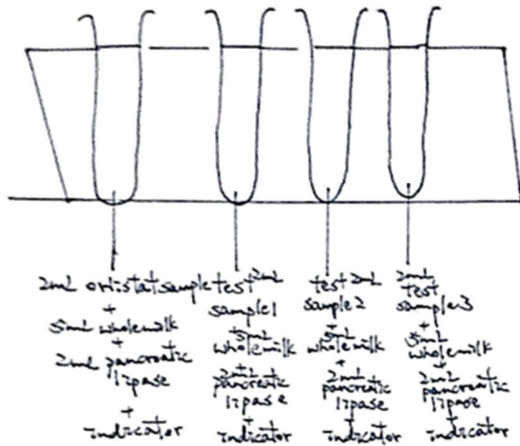 2mL orlistat sample
+
5mL whole milk
+
2mL pancreatic
lipase
+
indicator
test 2mL
sample1
+
5mL
whole milk
+
2mL
pancreatic
lipase
+
indicator
test 2mL
sample2
+
5mL
whole milk
+
2mL
pancreatic
lipase
+
indicator
2mL
test
sample3
+
5mL
whole milk
+
2mL
pancreatic
lipase
+
indicator